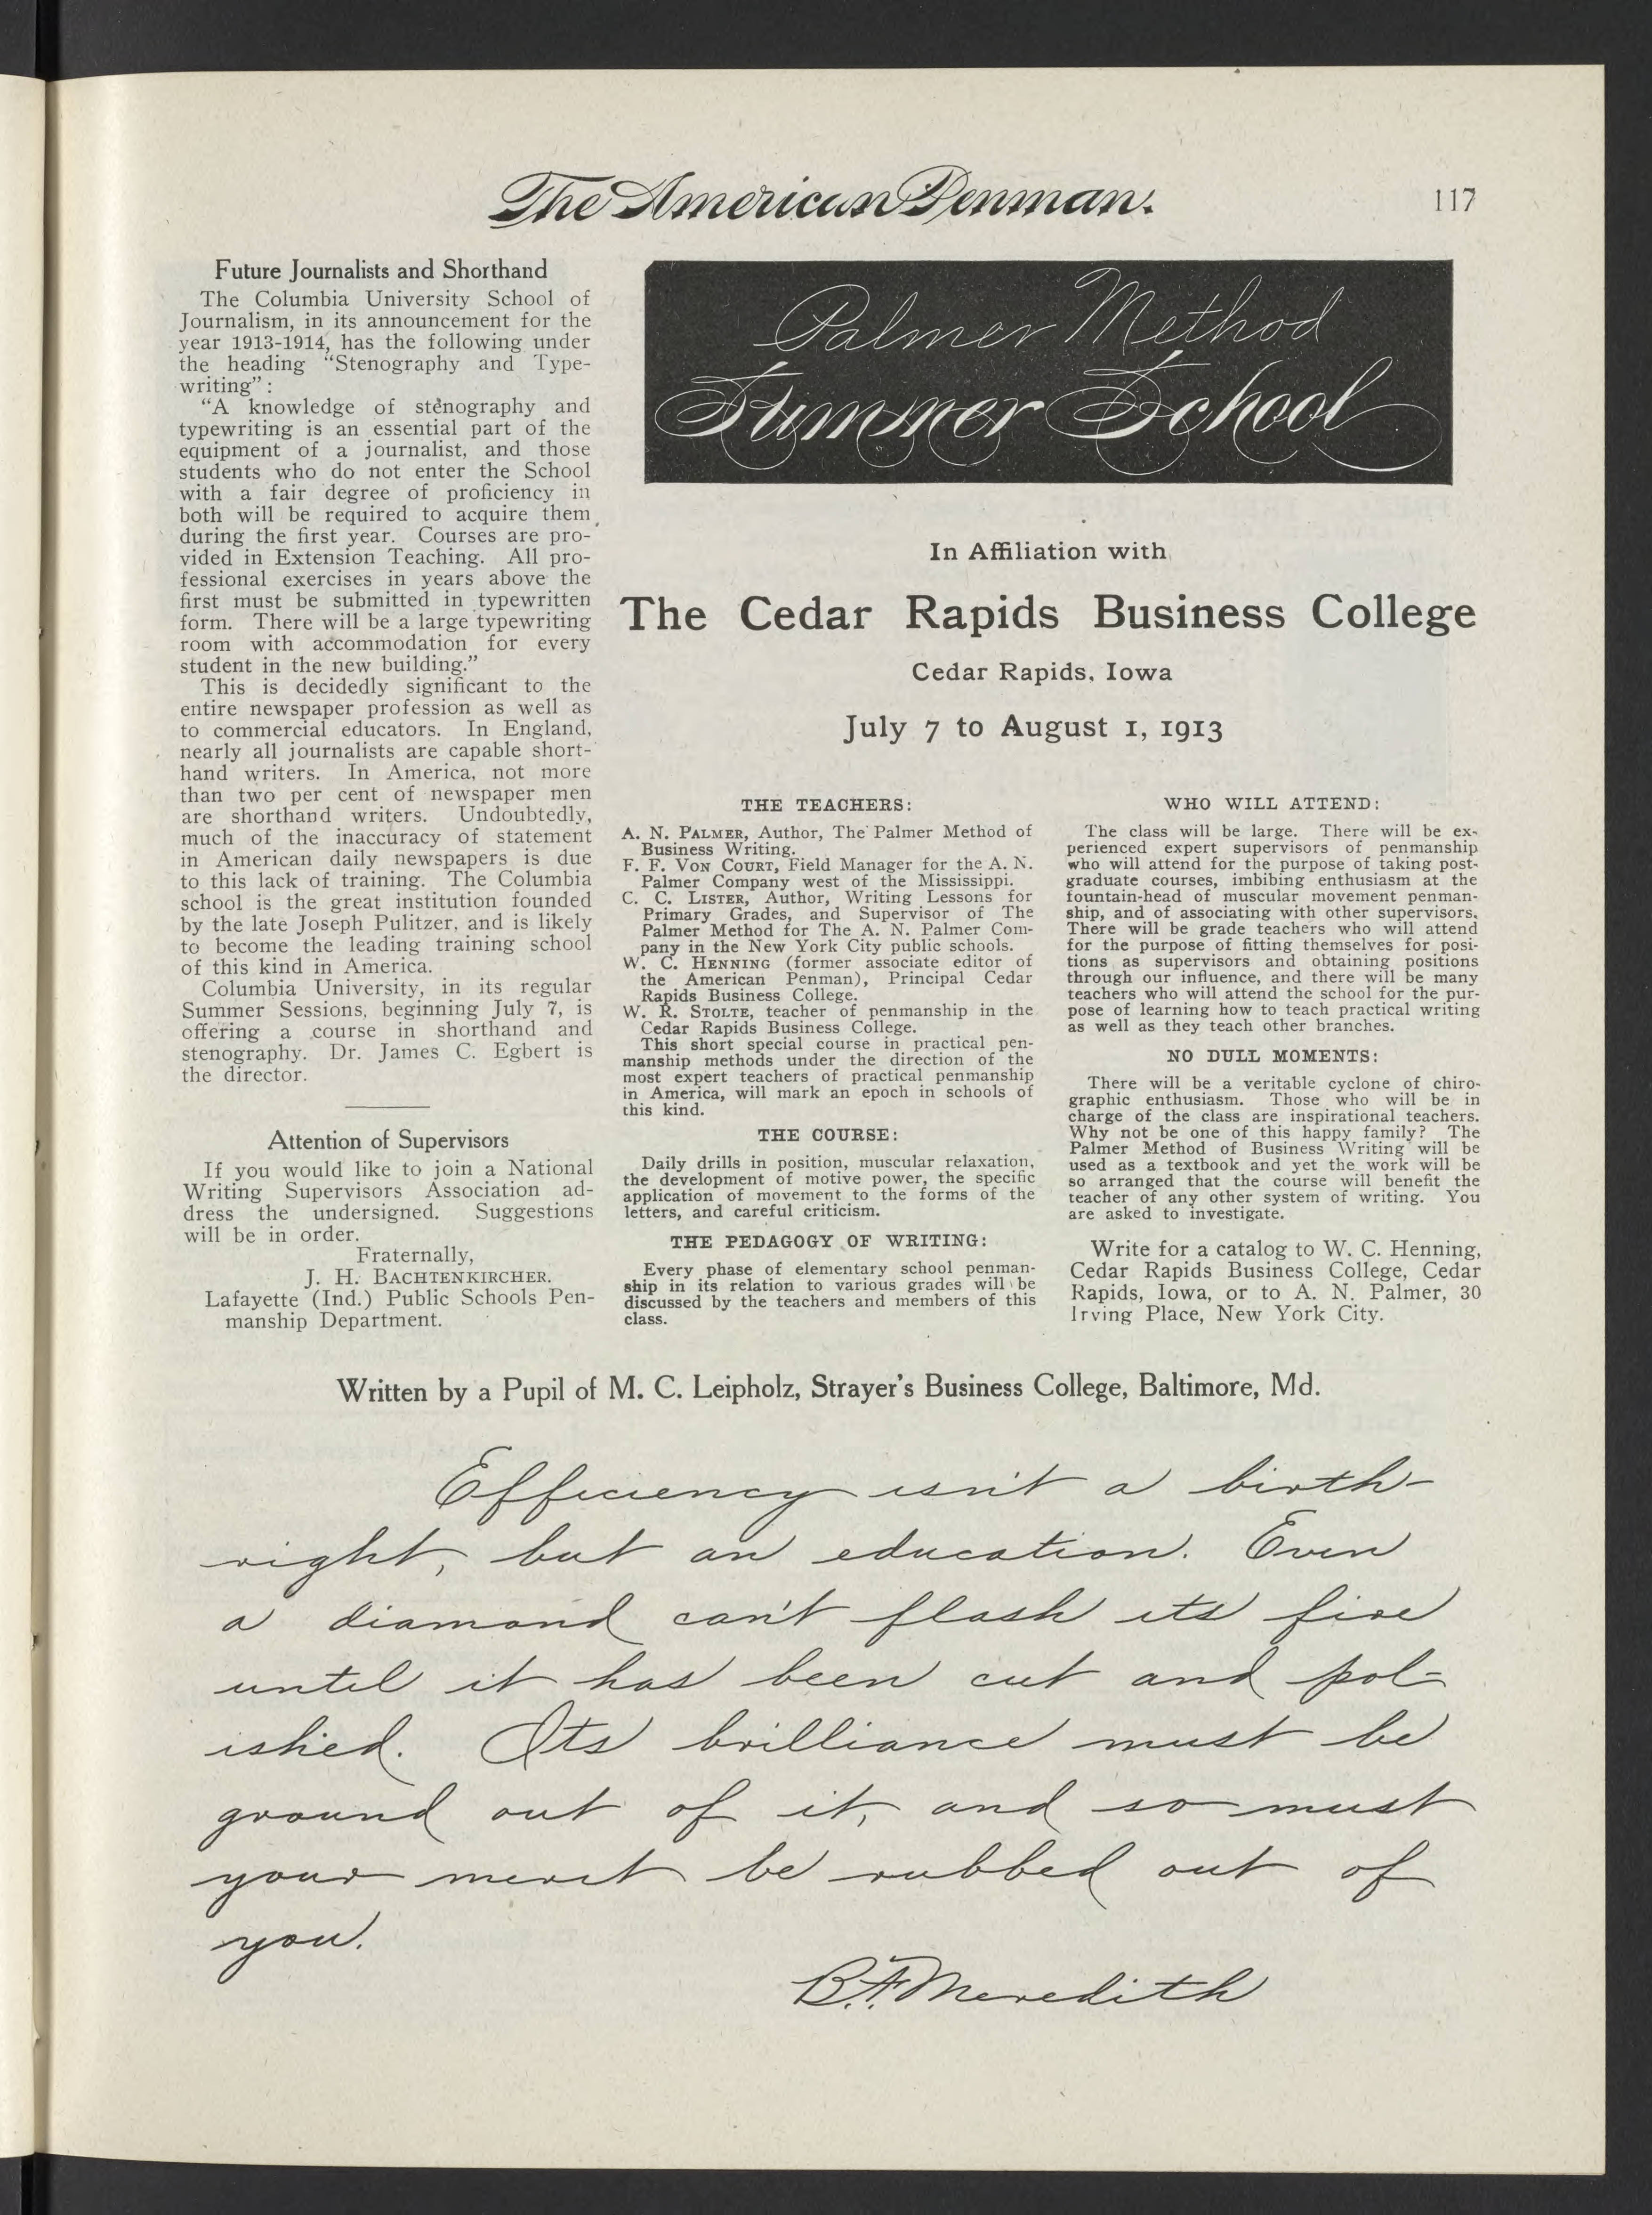 The American Penman.
117
Future Journalists and Shorthand
The Columbia University School of
Journalism, in its announcement for the
year 1913-1914, has the following under
the heading "Stenography and Type-
writing":
"A knowledge of stenography and
typewriting is an essential part of the
equipment of a journalist, and those
students who do not enter the School
with a fair degree of proficiency in
both will be required to acquire them
during the first year. Courses are pro-
vided in Extension Teaching. All pro-
fessional exercises in years above the
first must be submitted in typewritten
form. There will be a large typewriting
room with accommodation for every
student in the new building."
This is decidedly significant to the
entire newspaper profession as well as
to commercial educators. In England,
nearly all journalists are capable short-
hand writers. In America, not more
than two per cent of newspaper men
are shorthand writers. Undoubtedly,
much of the inaccuracy of statement
in American daily newspapers is due
to this lack of training. The Columbia
school is the great institution founded
by the late Joseph Pulitzer, and is likely
to become the leading training school
of this kind in America.
Columbia University, in its regular
Summer Sessions, beginning July 7, is
offering a course in shorthand and
stenography. Dr. James C. Egbert is
the director.
Attention of Supervisors
If you would like to join a National
Writing Supervisors Association ad-
dress the undersigned. Suggestions
will be in order.
Fraternally,
J. H. BACHTENKIRCHER.
Lafayette (Ind.) Public Schools Pen-
manship Department.
Palmer Method
Summer School
In Affiliation with
The Cedar Rapids Business College
Cedar Rapids, Iowa
July 7 to August 1, 1913
THE TEACHERS:
A. N. PALMER, Author, The Palmer Method of
Business Writing.
F. F. VON COURT, Field Manager for the A. N.
Palmer Company west of the Mississippi.
C. C. LISTER, Author, Writing Lessons for
Primary Grades, and Supervisor of The
Palmer Method for The A. N. Palmer Com-
pany in the New York City public schools.
W. C. HENNING (former associate editor of
the American Penman), Principal Cedar
Rapids Business College.
W. R. STOLTE, teacher of penmanship in the
Cedar Rapids Business College.
This short special course in practical pen-
manship methods under the direction of the
most expert teachers of practical penmanship
in America, will mark an epoch in schools of
this kind.
THE COURSE:
Daily drills in position, muscular relaxation,
the development of motive power, the specific
application of movement to the forms of the
letters, and careful criticism.
THE PEDAGOGY OF WRITING:
Every phase of elementary school penman-
ship in its relation to various grades will be
discussed by the teachers and members of this
class.
WHO WILL ATTEND:
The class will be large. There will be ex-
perienced expert supervisors of penmanship
who will attend for the purpose of taking post-
graduate courses, imbibing enthusiasm at the
fountain-head of muscular movement penman-
ship, and of associating with other supervisors.
There will be grade teachers who will attend
for the purpose of fitting themselves for posi-
tions as supervisors and obtaining positions
through our influence, and there will be many
teachers who will attend the school for the pur-
pose of learning how to teach practical writing
as well as they teach other branches.
NO DULL MOMENTS:
There will be a veritable cyclone of chiro-
graphic enthusiasm. Those who will be in
charge of the class are inspirational teachers.
Why not be one of this happy family? The
Palmer Method of Business Writing will be
used as a textbook and yet the work will be
so arranged that the course will benefit the
teacher of any other system of writing. You
are asked to investigate.
Write for a catalog to W. C. Henning,
Cedar Rapids Business College, Cedar
Rapids, Iowa, or to A. N. Palmer, 30
Irving Place, New York City.
Written by a Pupil of M. C. Leipholz, Strayer's Business College, Baltimore, Md.
Efficiency isn't a birth-
right, but an education. Even
a diamond can't flash its fire
until it has been cut and pol-
ished. Its brilliance must be
ground out of it, and so must
your merit be rubbed out of
you.
B.F. Meredith